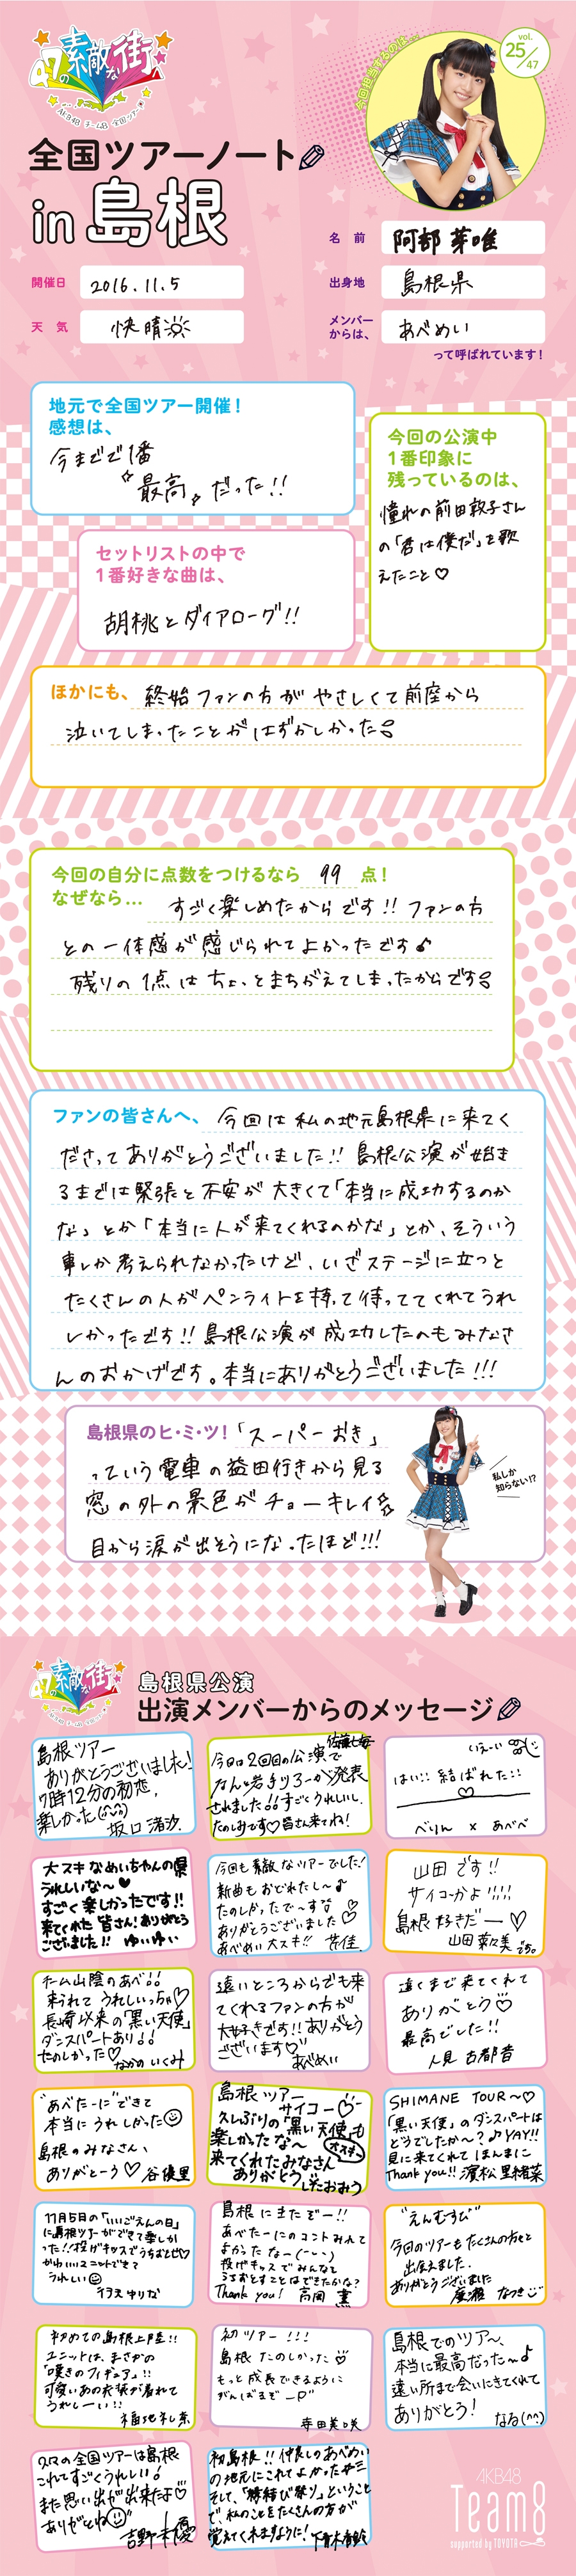 47の素敵な街へ
AKB48 チーム8 全国ツアー
今回担当するのは…
vol.
25/47
全国ツアーノート
in 島根
名 前
阿部 芽唯
開催日
2016.11.5
出身地
島根県
天 気
快晴
メンバー
からは、
あべめい
って呼ばれています!
地元で全国ツアー開催!
感想は、
今までで1番
最高 だった!!
今回の公演中
1番印象に
残っているのは、
憧れの前田敦子さん
の「君は僕だ」を歌
えたこと♡
セットリストの中で
1番好きな曲は、
胡桃とダイアローグ!!
ほかにも、 終始ファンの方がやさしくて前座から
泣いてしまったことがはずかしかった
今回の自分に点数をつけるなら 99 点!
なぜなら… すごく楽しめたからです!! ファンの方
との一体感が感じられてよかったです♪
残りの1点はちょっとまちがえてしまったからです
ファンの皆さんへ、 今回は私の地元島根県に来てく
ださってありがとうございました!! 島根公演が始ま
るまでは緊張と不安が大きくて「本当に成功するのか
な」とか「本当に人が来てくれるのかな」とか、そういう
事しか考えられなかったけど、いざステージに立つと
たくさんの人がペンライトを持って待っててくれてうれ
しかったです!! 島根公演が成功したのもみなさ
んのおかげです。本当にありがとうございました!!!
島根県のヒ・ミ・ツ! 「スーパーおき」
っていう電車の益田行きから見る
窓の外の景色がチョーキレイ
目から涙が出そうになったほど!!!
私しか
知らない!?
47の素敵な街へ
島根県公演
出演メンバーからのメッセージ
島根ツアー
ありがとうございました!
7時12分の初恋、
楽しかった(^^)
坂口渚沙
佐藤七海
今日は2回目の公演で
なんと若手リーが発表
されました!! すごくうれしいし、
たのしみです♡皆さん来てね!
いぇーい
はい:: 結ばれた::
べりん × あべべ
大スキなめいちゃんの県
うれしいな~♥
すごく楽しかったです!!
来てくれた皆さん!ありがとう
ございました!! ゆいゆい
今回も素敵なツアーでした!
新曲もおどれたし~♪
たのしかったで~す
ありがとうございました♡
あべめい大スキ!!
山田です!!
サイコーかよ!!!!
島根好きだー♡
山田菜々美
チーム山陰のあべ!!
来られてうれしいっちゃ♡
長崎以来の「黒い天使」
ダンスパートあり!!
たのしかった♡
なかの いくみ
遠いところからでも来
てくれるファンの方が
大好きです!! ありがとう
ございます♡
あべめい
遠くまで来てくれて
ありがとう♡
最高でした!!
人見古都音
"あべたーに"できて
本当にうれしかった
島根のみなさん、
ありがとーう♡ 谷優里
島根ツアー
サイコー♡
久しぶりの「黒い天使」も
楽しかったな~
来てくれたみなさん
ありがとう
したおみう
SHIMANE TOUR~♡
「黒い天使」のダンスパートは
どうでしたか~?♪YAY!!
見に来てくれてほんまに
Thank you!! 濵松里緒菜
11月5日の「いいごえんの日」
に島根ツアーができて楽しか
った!!投げキッスでうちおとせ♡
かわいいユニットできて
うれしい
行天ゆりな
島根にきたぞー!!
あべたーにのコントみれて
よかったなー
投げキッスでみんなを
うちおとすことはできたかな?
Thank you! 高岡薫
"えんむすび"
今回のツアーもたくさんの方々と
出会えました。
ありがとうございました
廣瀬なつき
初めての島根上陸!!
ユニットは、まさかの
「嘆きのフィギュア」!!
可愛いあの衣装が着れて
うれしーい!!
福地礼奈
初ツアー!!!
島根たのしかった♡
もっと成長できるように
がんばるぞー
寺田美咲
島根でのツアー、
本当に最高だった~♪
遠い所まで会いにきてくれて
ありがとう!
なる(^^)
久々の全国ツアーは島根
これてすごくうれしい!
また思い出が出来たよ♡
ありがとね
吉野未優
初島根!! 仲良しのあべめい
の地元にこれてよかった
そして、「縁結び祭り」ということ
で、私のことをたくさんの方が
覚えてくれますように!
下青木香鈴
AKB48
Team8
supported by TOYOTA